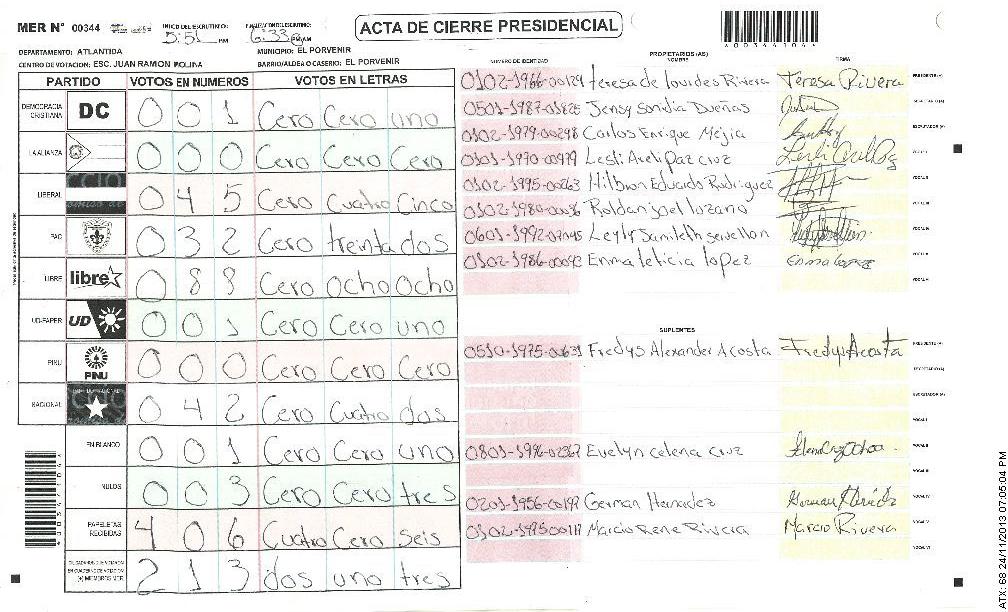 MER Nº 00344
INICIO DEL ESCRUTINIO: 5:51 PM
6:33 PM
ACTA DE CIERRE PRESIDENCIAL
DEPARTAMENTO: ATLANTIDA
MUNICIPIO: EL PORVENIR
CENTRO DE VOTACION: ESC. JUAN RAMON MOLINA
BARRIO/ALDEA O CASERIO: EL PORVENIR
PARTIDO VOTOS EN NUMEROS VOTOS EN LETRAS
DEMOCRACIA CRISTIANA DC 0 0 1 Cero Cero uno
LA ALIANZA 0 0 0 Cero Cero Cero
LIBERAL 0 4 5 Cero Cuatro Cinco
PAC 0 3 2 Cero treinta dos
LIBRE libre 0 8 8 Cero Ocho Ocho
UD-FAPER UD 0 0 1 Cero Cero uno
PINU PINU 0 0 0 Cero Cero Cero
NACIONAL 0 4 2 Cero Cuatro dos
EN BLANCO 0 0 1 Cero Cero uno
NULOS 0 0 3 Cero Cero tres
PAPELETAS RECIBIDAS 4 0 6 Cuatro Cero seis
(+) MIEMBROS MER 2 1 3 dos uno tres
PROPIETARIOS (AS)
NUMERO DE IDENTIDAD NOMBRE FIRMA
0102-1966-00129 teresa de lourdes Rivera Teresa Rivera PRESIDENTE(A)
0501-1987-01825 Jensy Sonidia Dueñas SECRETARIO(A)
0102-1979-00298 Carlos Enrique Mejia ESCRUTADOR(A)
0101-1970-00979 Lesli Areli Paz cruz VOCAL I
0102-1995-00263 Hilbron Eduardo Rodriguez VOCAL II
0102-1980-00036 Roldan joel lozano VOCAL III
0601-1992-02045 VOCAL IV
0102-1986-00092 Enma leticia lopez Enma lopez VOCAL V
VOCAL VI
SUPLENTES
0510-1975-00631 Fredys Alexander Acosta Fredys Acosta PRESIDENTE(A)
SECRETARIO(A)
ESCRUTADOR(A)
VOCAL I
0801-1996-02367 Evelyn celena cruz VOCAL II
VOCAL III
0201-1956-00197 German Hernadez VOCAL IV
0102-1975-00119 Marcio Rene Rivera Marcio Rivera VOCAL V
VOCAL VI
ATX: 68 24/11/2013 07:05:04 PM